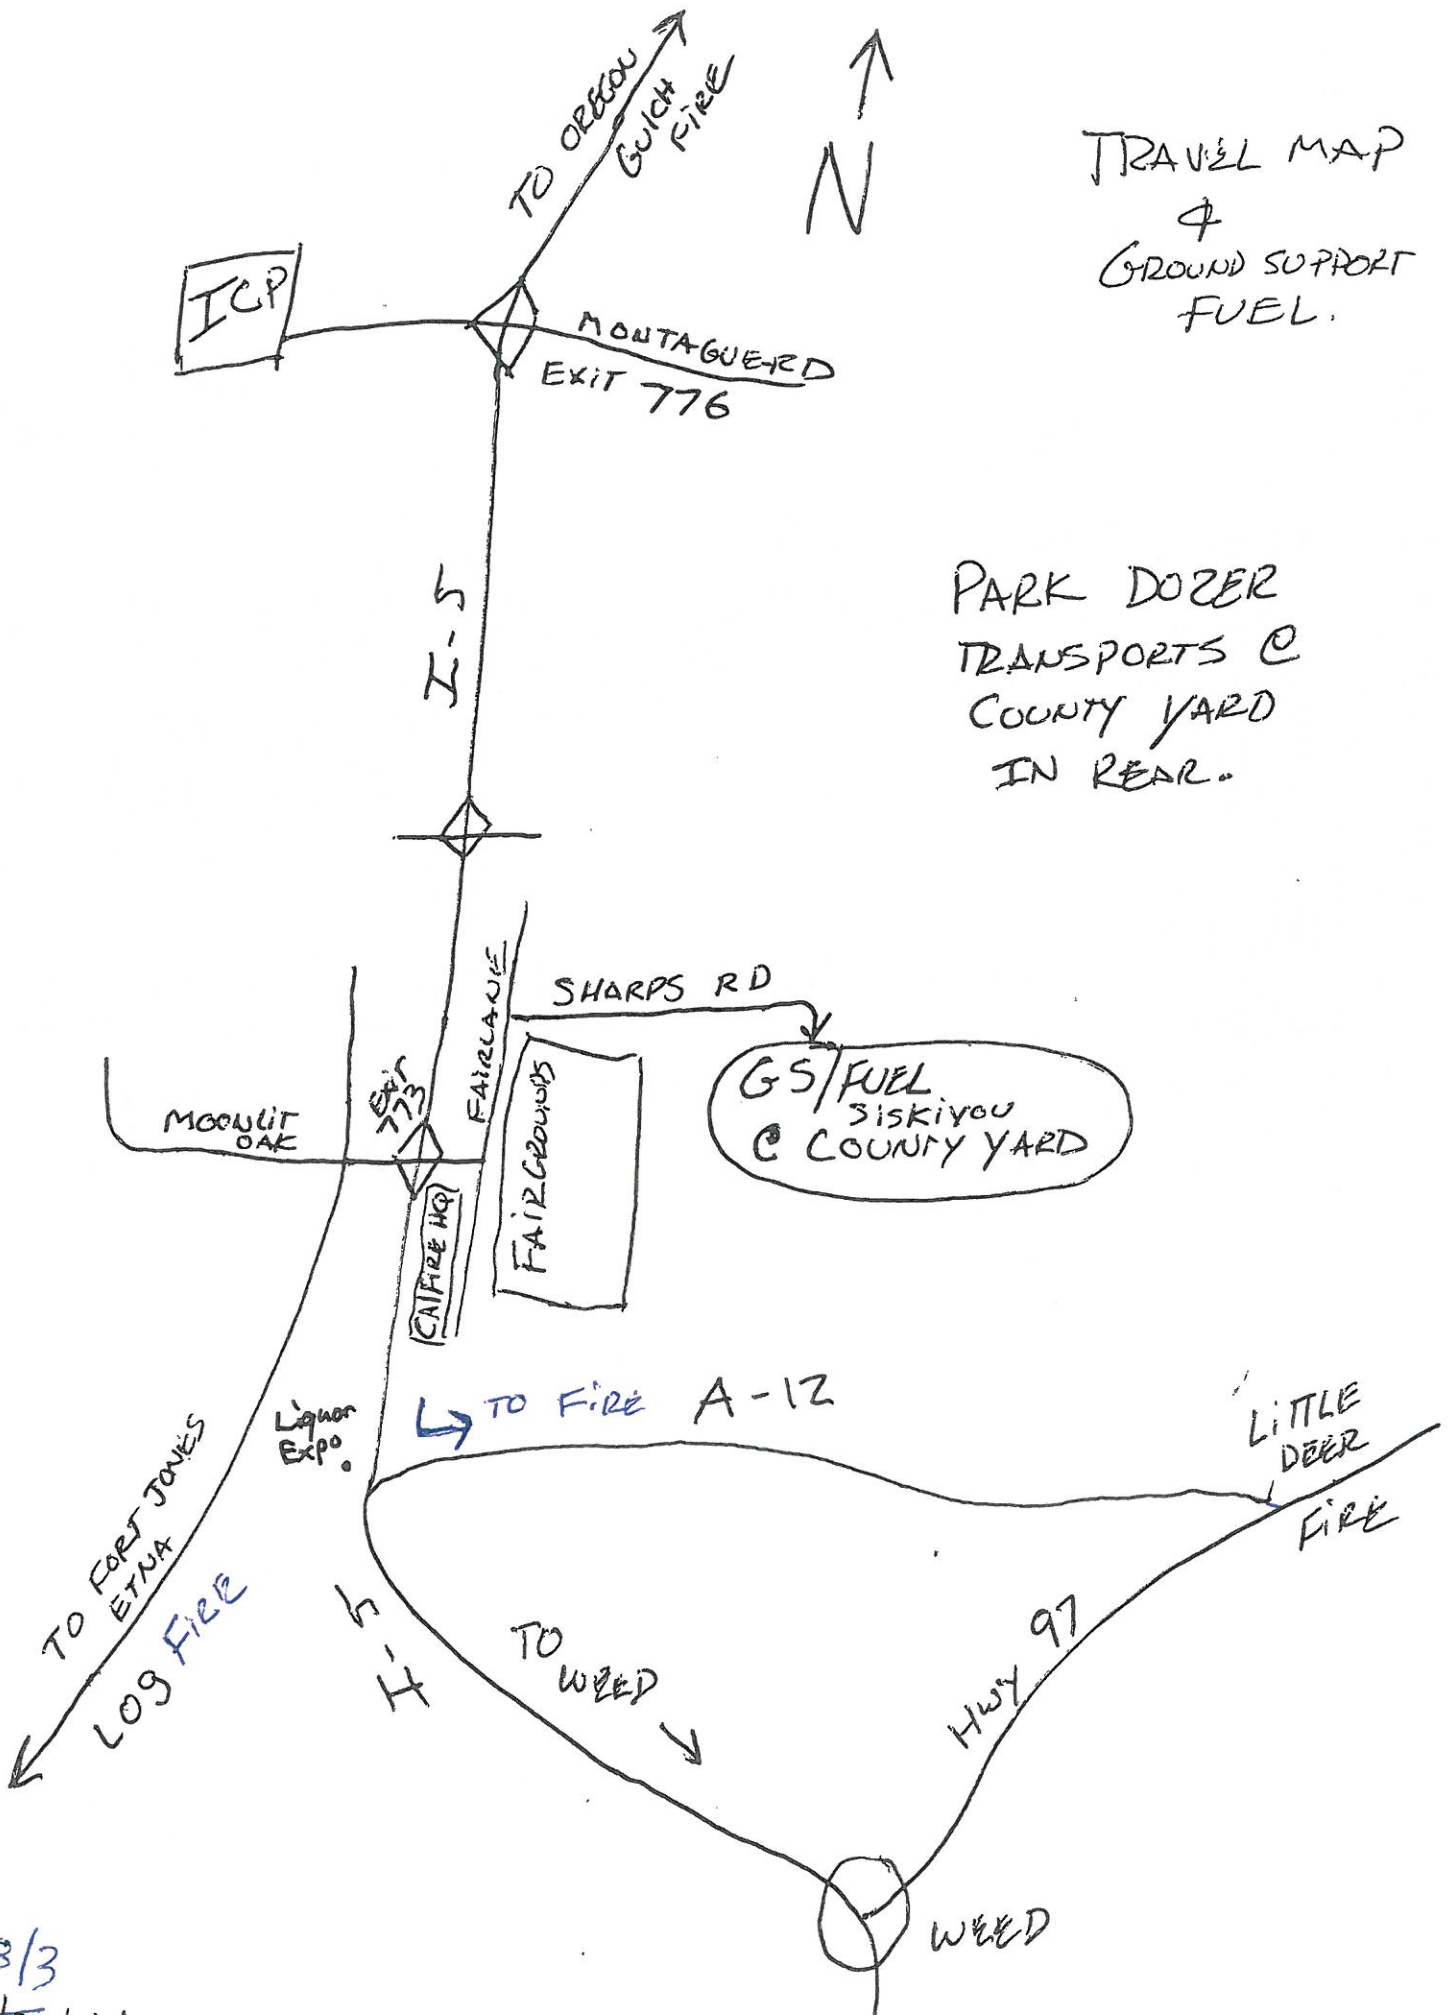 TO OREGON
GULCH
FIRE
N
TRAVEL MAP
&
GROUND SUPPORT
FUEL.
ICP
MONTAGUE RD
EXIT 776
I-5
PARK DOZER
TRANSPORTS @
COUNTY YARD
IN REAR.
FAIRLANE
SHARPS RD
EXIT
773
MOONLIT
OAK
GS/FUEL
SISKIYOU
@ COUNTY YARD
FAIRGROUNDS
CALFIRE HQ
TO FIRE A-12
Liquor
Expo.
LITTLE
DEER
FIRE
TO FORT JONES
ETNA
LOG FIRE
I-5
TO
WEED
HWY 97
WEED
8/3